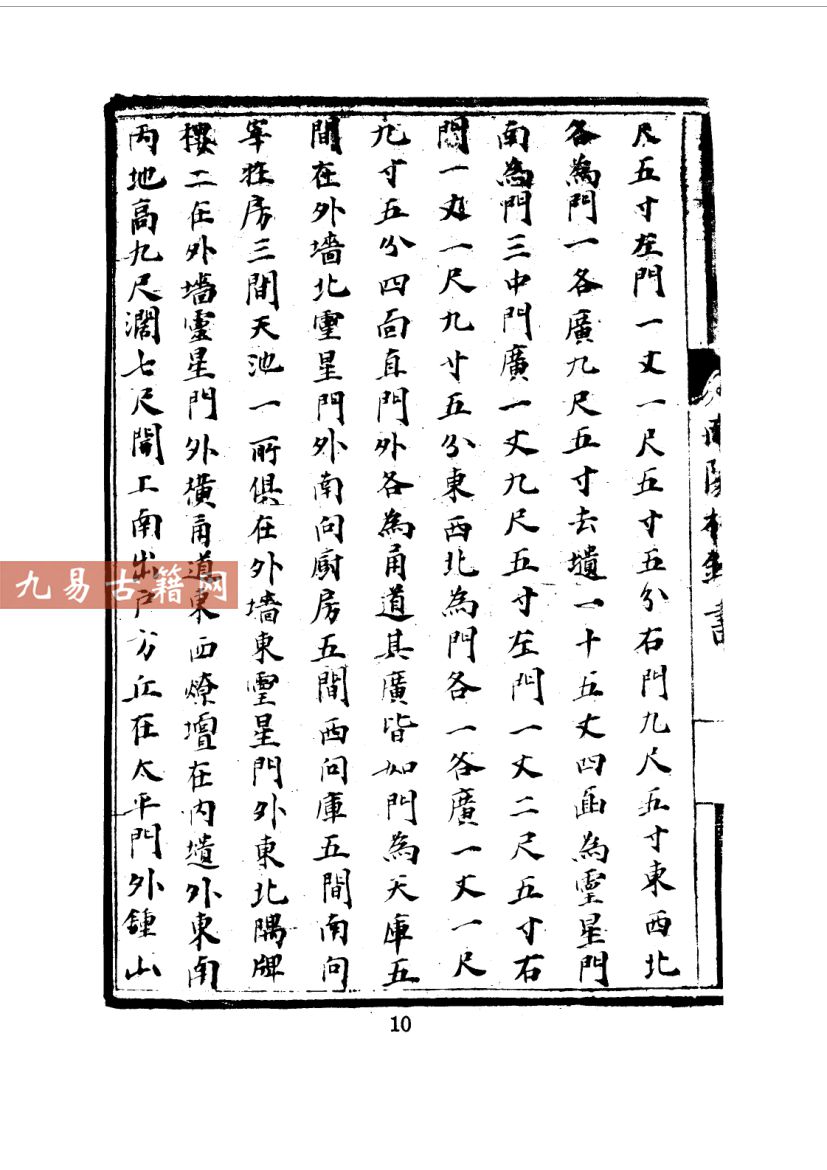 尺五寸左門一丈一尺五寸五分右門九尺五寸東西北
各為門一各廣九尺五寸去壝一十五丈四面為靈星門
南為門三中門廣一丈九尺五寸左門一丈二尺五寸右
門一丈一尺九寸五分東西北為門各一各廣一丈一尺
九寸五分四面直門外各為甬道其廣皆如門為天庫五
間在外墻北靈星門外南向廚房五間西向庫五間南向
宰牲房三間天池一所俱在外墻東靈星門外東北隅牌
樓二在外墻靈星門外橫甬道東西燎壇在內壝外東南
丙地高九尺濶七尺開上南出戶方丘在太平門外鍾山
九易古籍网
10